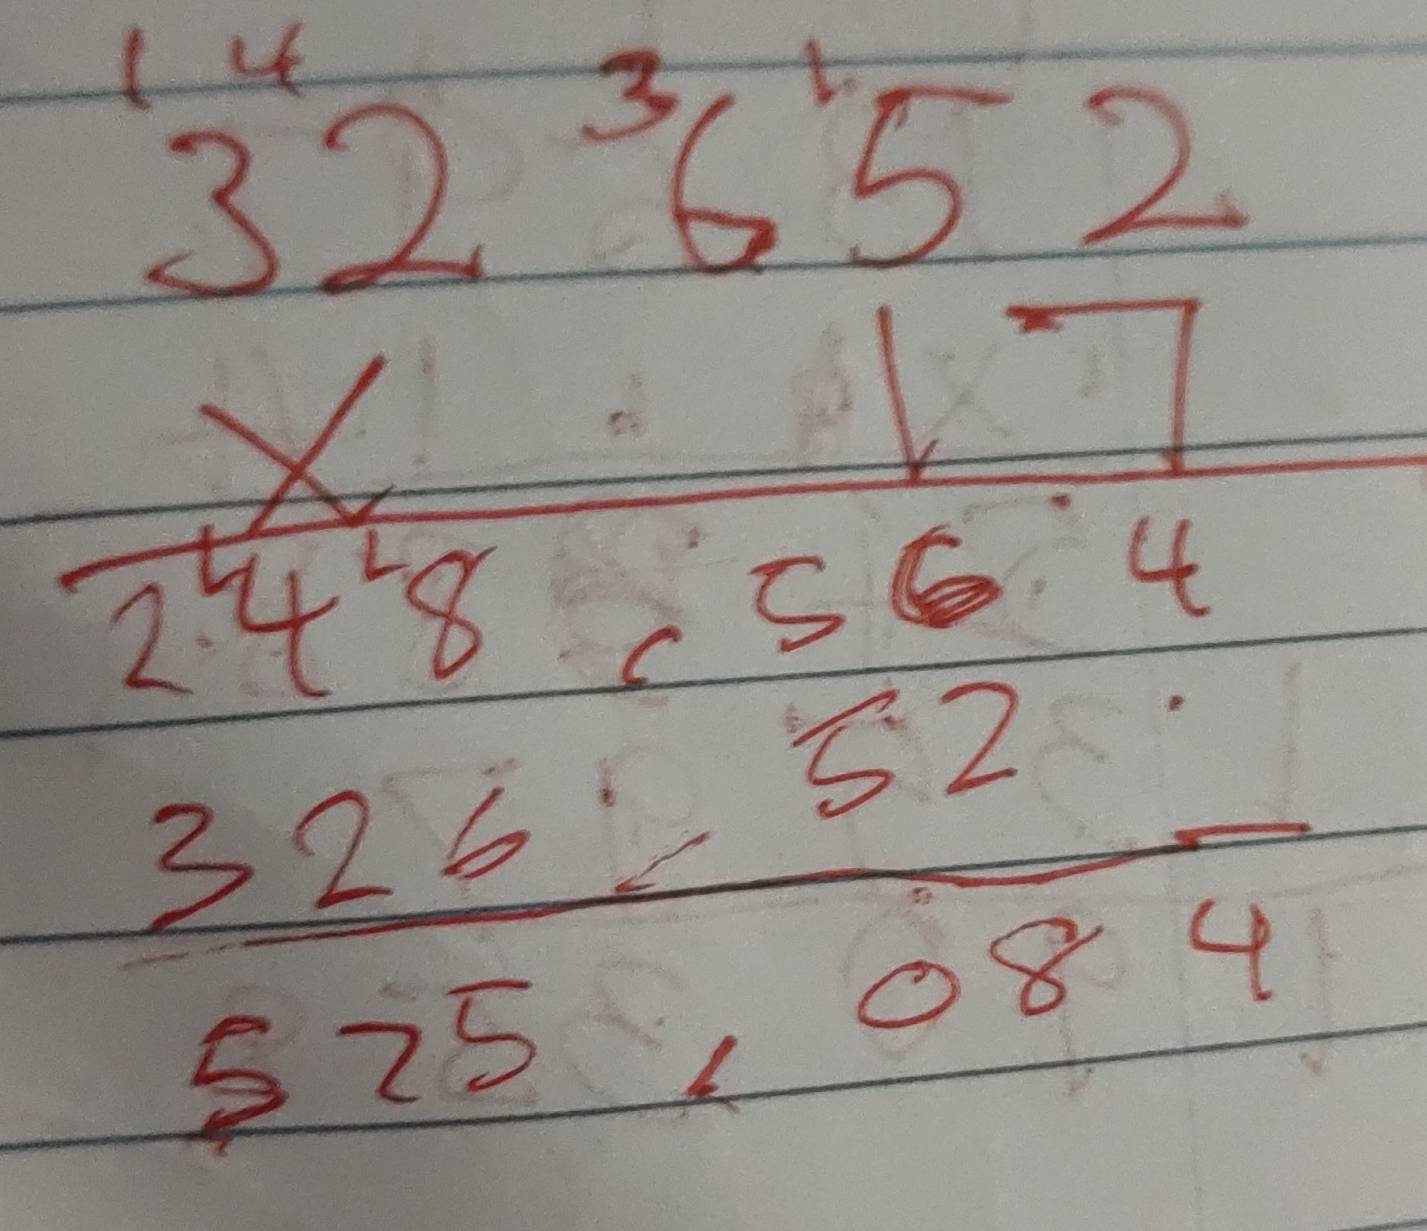 1 4 3 1
32 652
X 17
1 1
248,564
326,52_
575,084